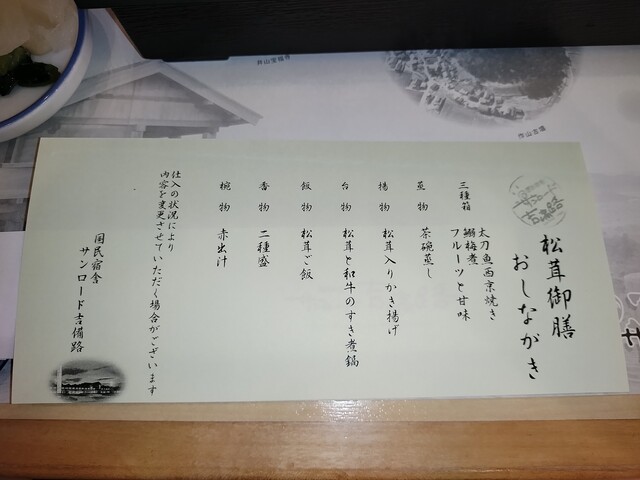 松茸御膳
おしながき
三種箱
太刀魚西京焼き
鰯梅煮
フルーツと甘味
蒸物 茶碗蒸し
揚物 松茸入りかき揚げ
台物 松茸と和牛のすき煮鍋
飯物 松茸ご飯
香物 二種盛
椀物 赤出汁
仕入の状況により
内容を変更させていただく場合がございます
国民宿舎
サンロード吉備路
作山古墳